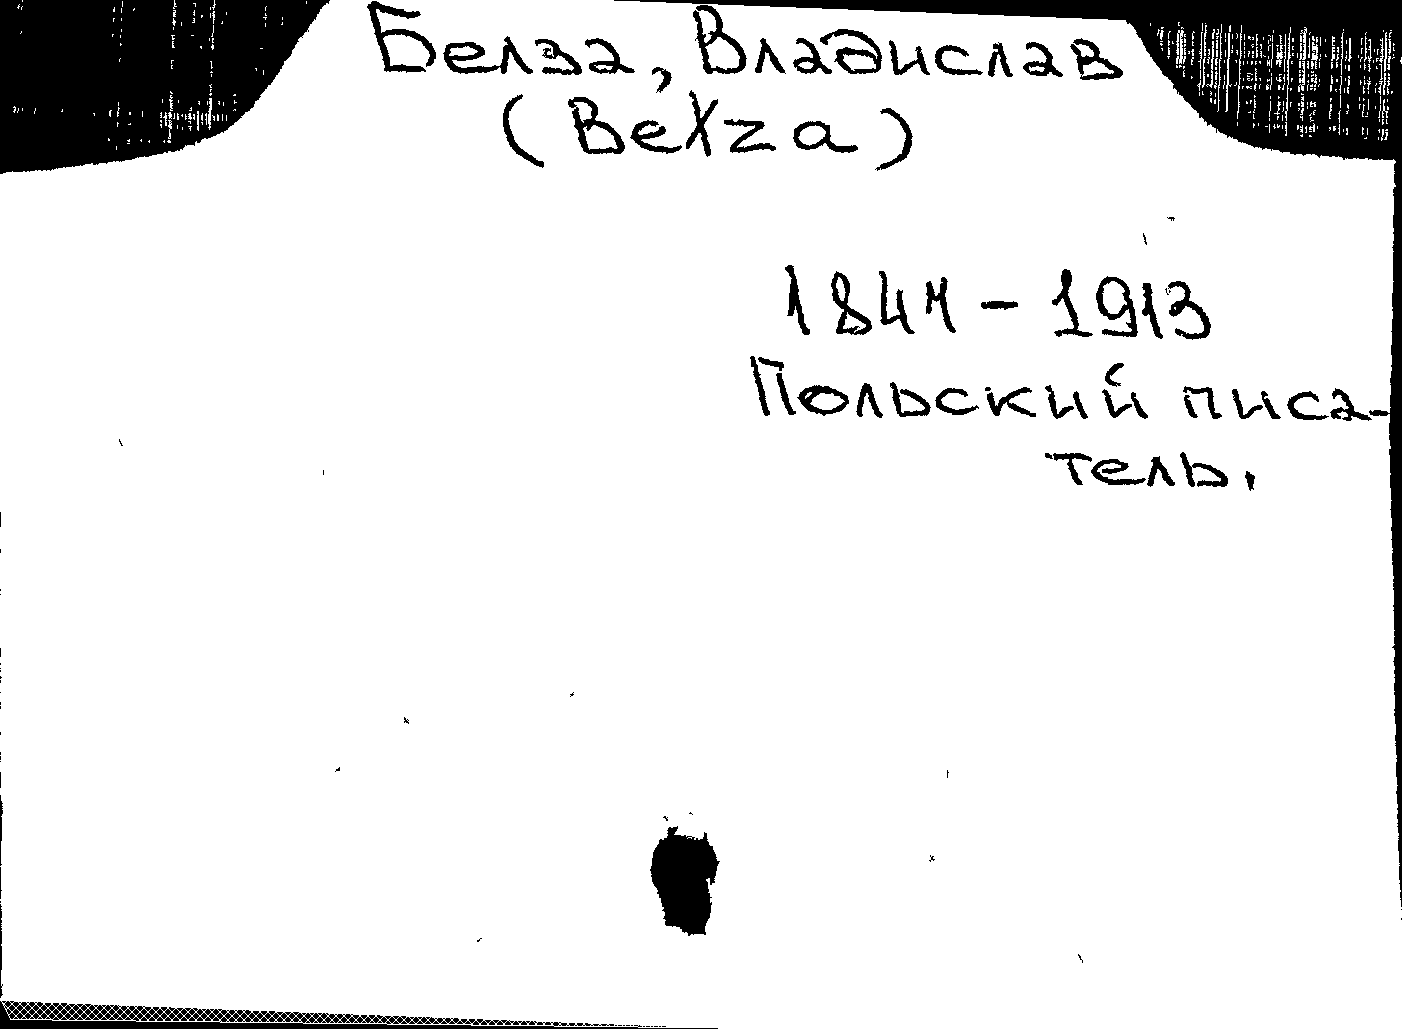 Белза, Владислав
(Bełza)
1847 - 1913
Польский писа-
тель.